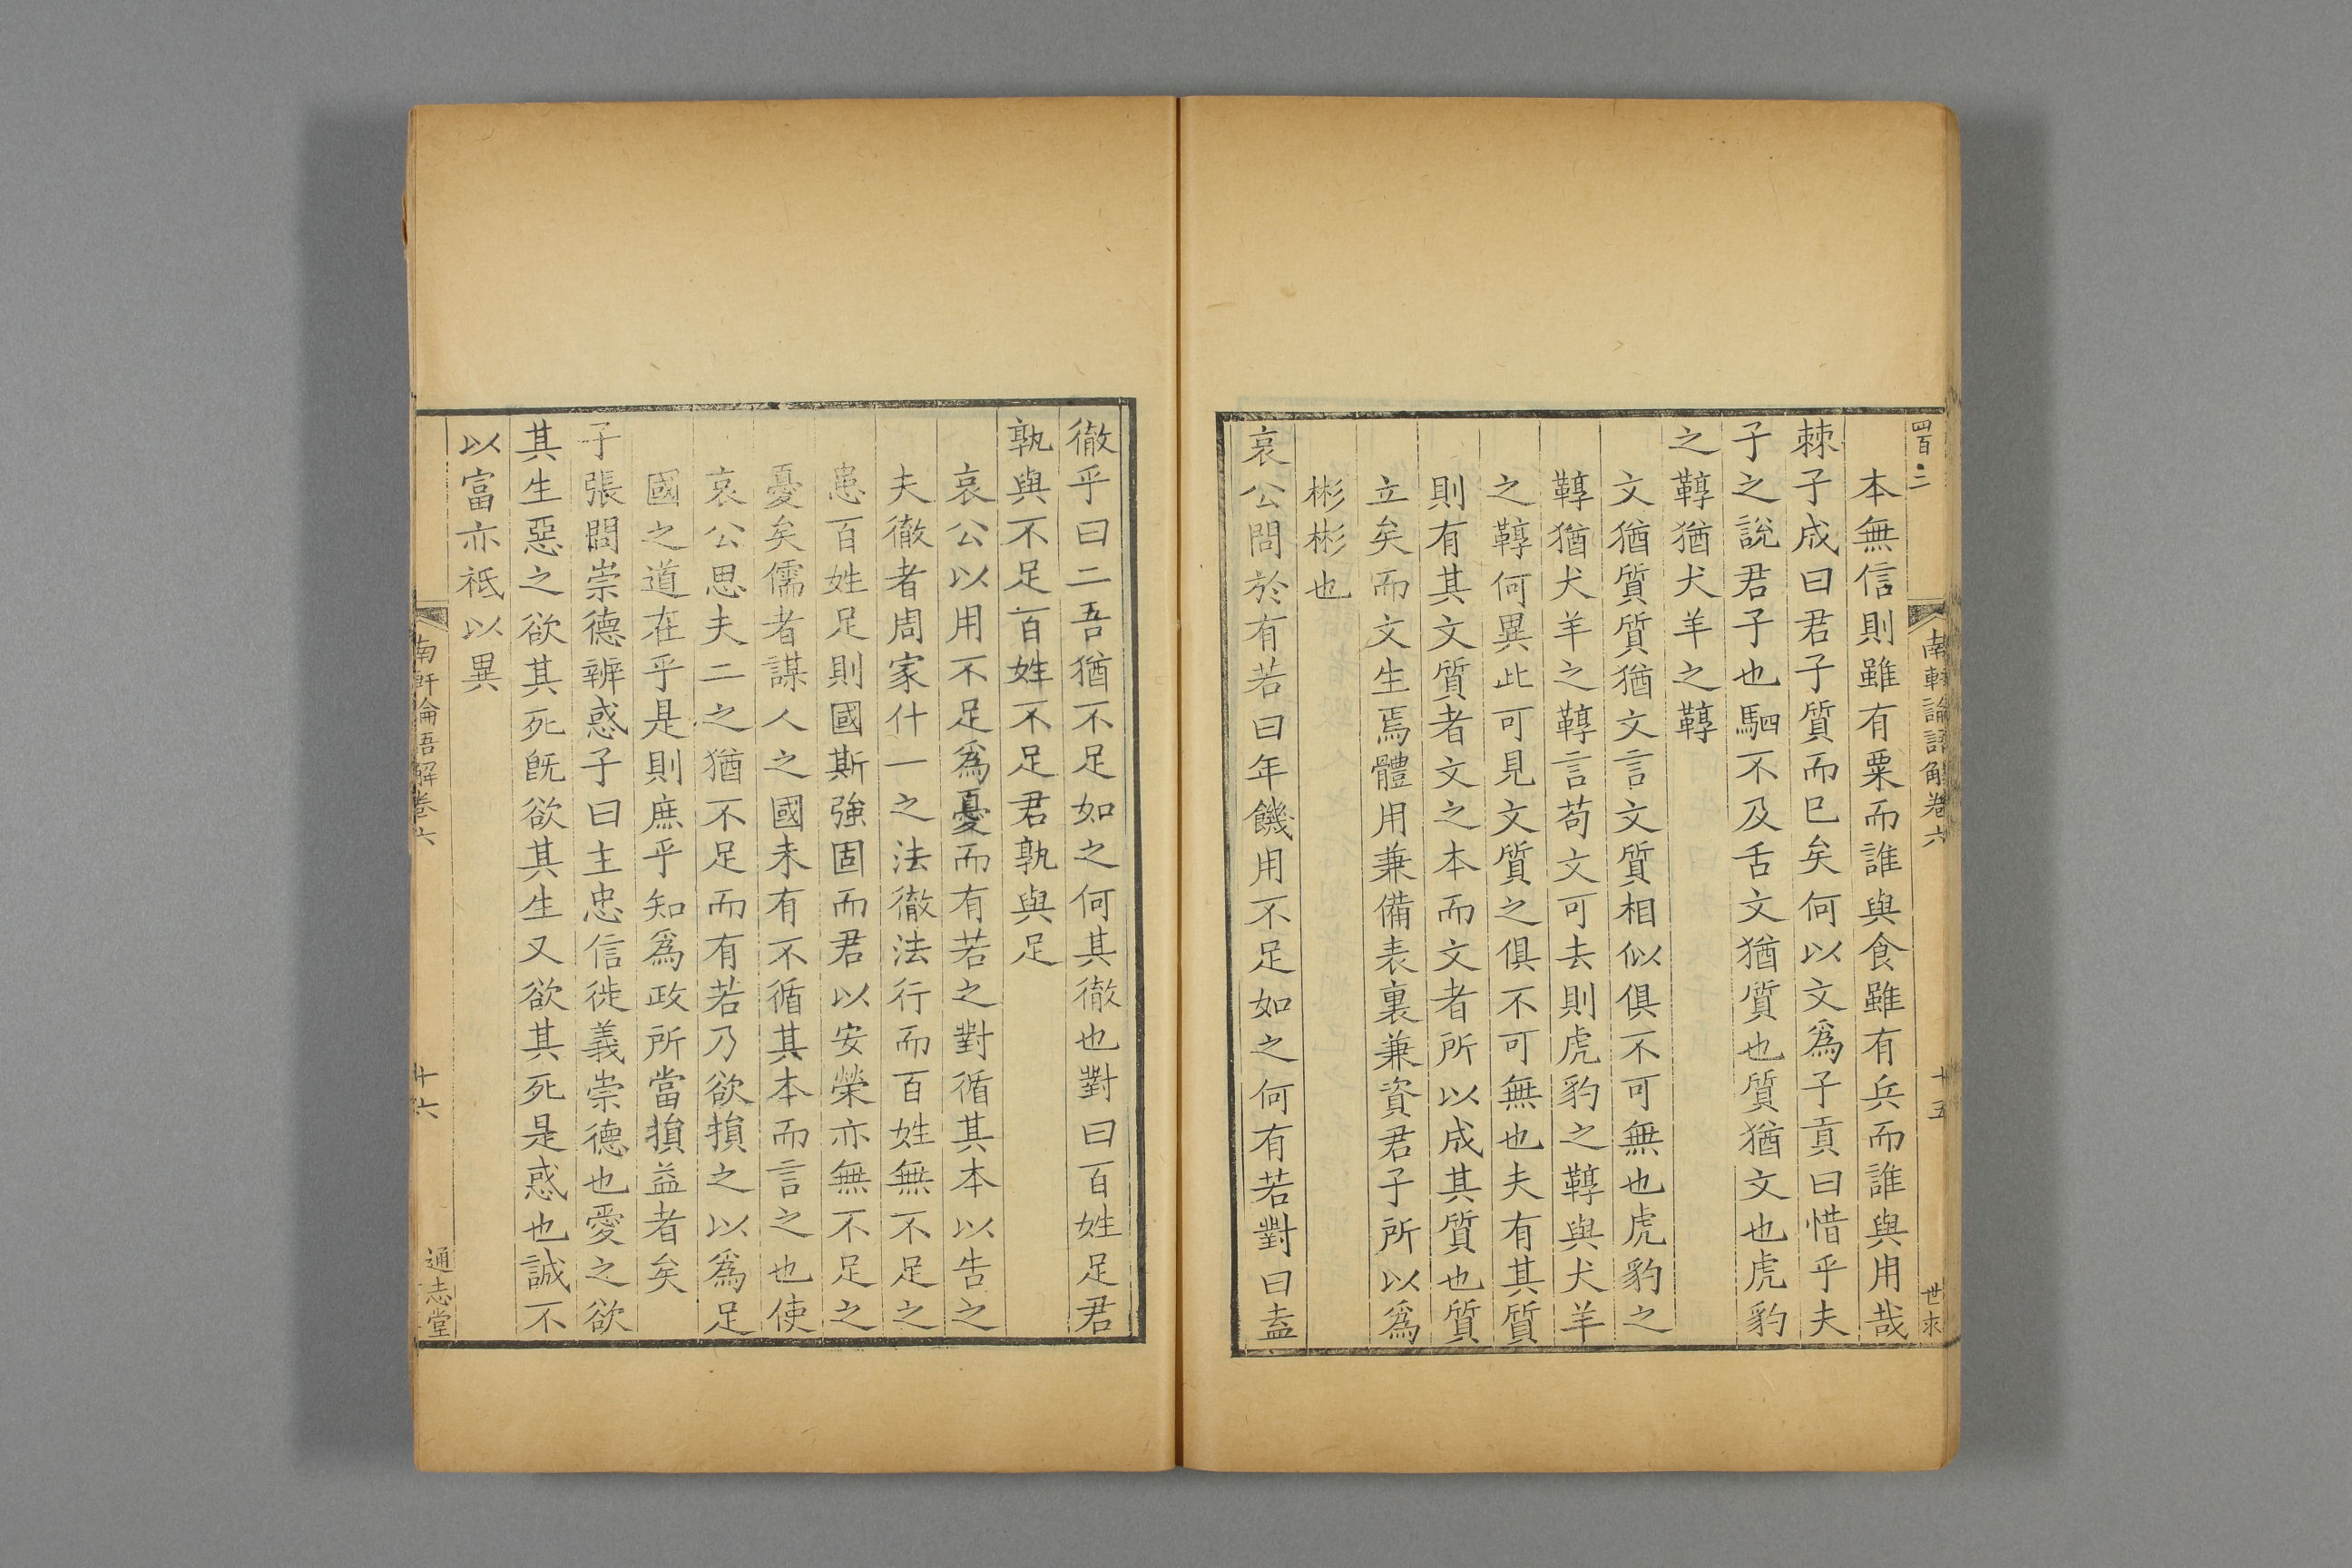 四百二
南軒論語解卷六
十五
本無信則雖有粟而誰與食雖有兵而誰與用哉
棘子成曰君子質而巳矣何以文爲子貢曰惜乎夫
子之說君子也駟不及舌文猶質也質猶文也虎豹
之鞟猶犬羊之鞟
文猶質質猶文言文質相似俱不可無也虎豹之
鞟猶犬羊之鞟言苟文可去則虎豹之鞟與犬羊
之鞟何異此可見文質之俱不可無也夫有其質
則有其文質者文之本而文者所以成其質也質
立矣而文生焉體用兼備表裏兼資君子所以爲
彬彬也
哀公問於有若曰年饑用不足如之何有若對曰盍
徹乎曰二吾猶不足如之何其徹也對曰百姓足君
孰與不足百姓不足君孰與足
哀公以用不足爲憂而有若之對循其本以告之
夫徹者周家什一之法徹法行而百姓無不足之
患百姓足則國斯強固而君以安榮亦無不足之
憂矣儒者謀人之國未有不循其本而言之也使
哀公思夫二之猶不足而有若乃欲損之以爲足
國之道在乎是則庶乎知爲政所當損益者矣
子張問崇德辨惑子曰主忠信徙義崇德也愛之欲
其生惡之欲其死旣欲其生又欲其死是惑也誠不
以富亦祗以異
南軒論語解卷六
十六
通志堂